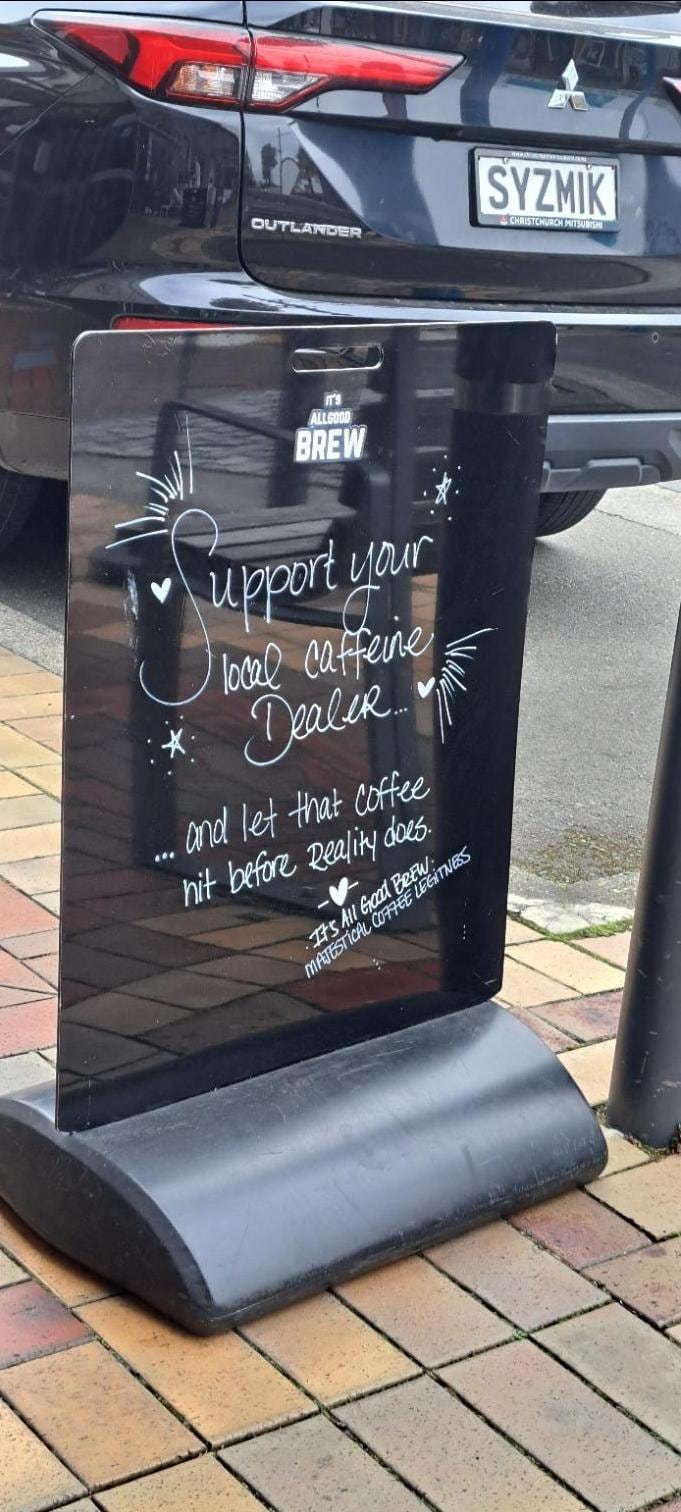 www.christchurchmitsubishi.co.nz
SYZMIK
CHRISTCHURCH MITSUBISHI
OUTLANDER
IT'S
ALLGOOD
BREW
Support your
local caffeine
Dealer...
... and let that coffee
hit before Reality does.
It's All Good Brew.
MAJESTICAL COFFEE LEGITNESS